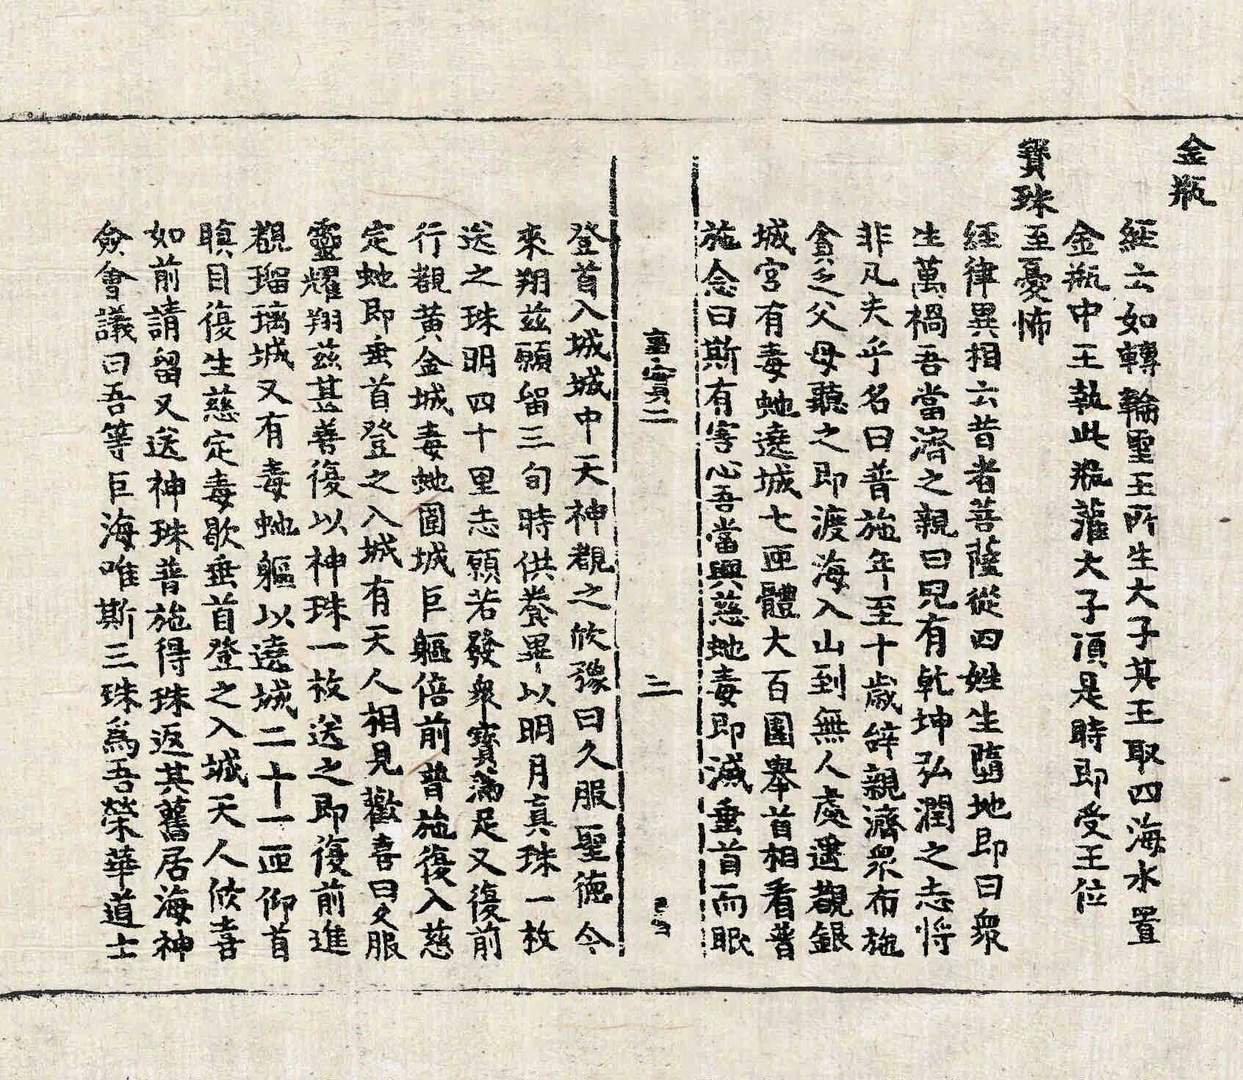 金瓶
經云如轉輪聖王所生大子其王取四海水置
金瓶中王執此瓶灌大子頂是時即受王位
寶珠至憂怖
經律異相云昔者菩薩從四姓生墮地即曰衆
生萬禍吾當濟之親曰兒有乾坤弘潤之志將
非凡夫乎名曰普施年至十歲辞親濟衆布施
貧乏父母聽之即渡海入山到無人處遥覩銀
城宮有毒虵遶城七匝體大百圍舉首相看普
施念曰斯有害心吾當興慈虵毒即滅垂首而眠
事實二
三
登首入城城中天神覩之欣豫曰久服聖德今
來翔茲願留三旬時供養畢以明月真珠一枚
送之珠明四十里志願若發衆寶滿足又復前
行覩黄金城毒虵圍城巨軀倍前普施復入慈
定虵即垂首登之入城有天人相見歡喜曰久服
靈耀翔茲甚善復以神珠一枚送之即復前進
覩瑠璃城又有毒虵軀以遶城二十一匝仰首
瞋目復生慈定毒歇垂首登之入城天人欣喜
如前請留又送神珠普施得珠返其舊居海神
僉會議曰吾等巨海唯斯三珠爲吾榮華道士